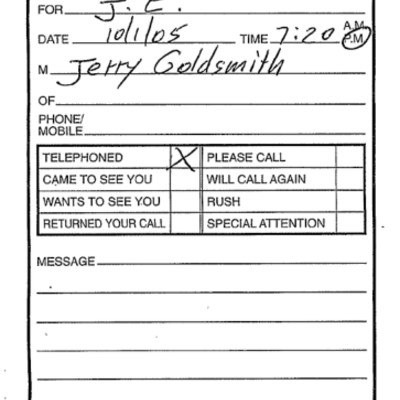 FOR J. E.
DATE 10/1/05 TIME 7:20 A.M. P.M.
M Jerry Goldsmith
OF
PHONE/
MOBILE
TELEPHONED X PLEASE CALL
CAME TO SEE YOU WILL CALL AGAIN
WANTS TO SEE YOU RUSH
RETURNED YOUR CALL SPECIAL ATTENTION
MESSAGE